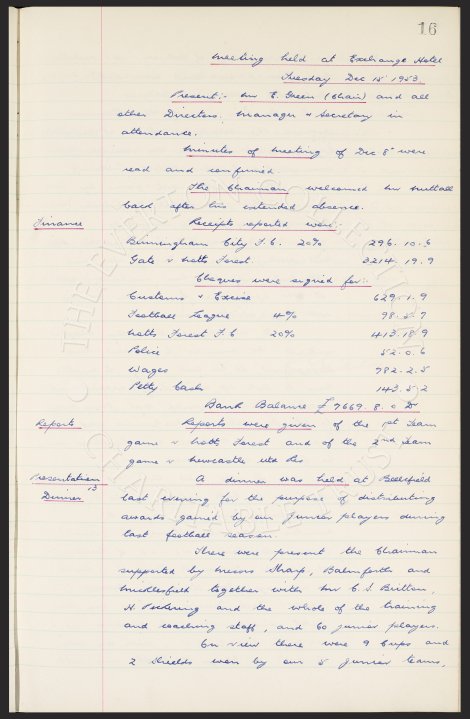 16
Meeting held at Exchange Hotel
Tuesday Dec 15 1953
Present:- Mr E. Green (Chair) and all
other Directors, Manager & Secretary in
attendance.
Minutes of meeting of Dec 8 were
read and confirmed
The Chairman welcomed Mr Nuttall
back after his extended absence.
Finance Receipts reported were
Birmingham City F.C. 20% 296.10.6
Gate v Notts Forest. 3214.19.9
Cheques were signed for:-
Customs & Excise 629.1.9
Football League 4% 98.5.7
Notts Forest F.C 20% 413.18.9
Police 52.0.6
Wages 782.2.5
Petty Cash 143.5.2
Bank Balance £7669.8.0 Dr
Reports Reports were given of the 1st Team
game v Notts Forest and of the 2nd Team
game v Newcastle Utd Res
Presentation A dinner was held at Bellefield
Dinner last evening for the purpose of distributing
awards gained by our junior players during
last football season.
There were present the Chairman
supported by Messrs Sharp, Balmforth and
Micklesfield together with Mr C.S. Britton,
H Pickering and the whole of the training
and coaching staff, and 60 junior players.
On view there were 9 Cups and
2 Shields won by our 5 junior teams,
THE EVERTON COLLECTION
CHARITABLE TRUST